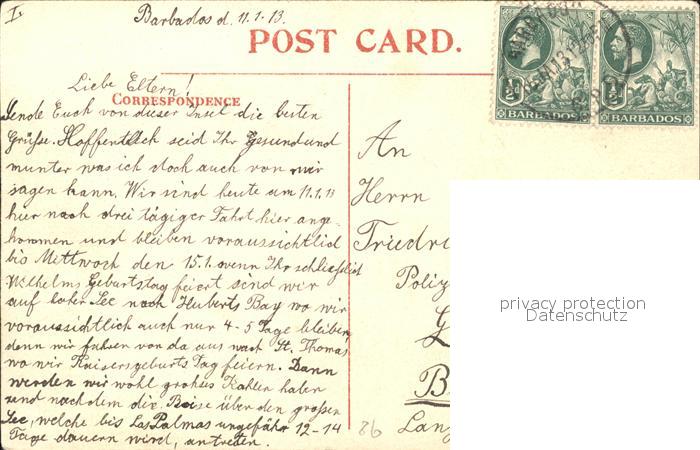 I.
Barbados d. 11.1.13.
POST CARD.
Liebe Eltern!
CORRESPONDENCE
Sende Euch von dieser Insel die besten
Grüsse. Hoffentlich seid Ihr Gesund und
munter was ich doch auch von mir
sagen kann. Wir sind heute am 11.1.13
hier nach drei tägiger Fahrt hier ange-
kommen und bleiben voraussichtlich
bis Mittwoch den 15.1. wenn Ihr schliesslich
Wilhelms Geburtstag feiert sind wir
auf hoher See nach Huberts Bay wo wir
voraussichtlich auch nur 4-5 Tage bleiben,
denn wir fahren von da aus nach St. Thomas
wo wir Kaisersgeburts Tag feiern. Dann
werden wir wohl grohses Kohlen haben
und nachdem die Reise über den grossen
See, welche bis Las Palmas ungefähr 12-14
Tage dauern wird, antreten.
BARBADOS
BARBADOS
An
Herrn
Friedri
Poliz
B
Lan
86
privacy protection
Datenschutz